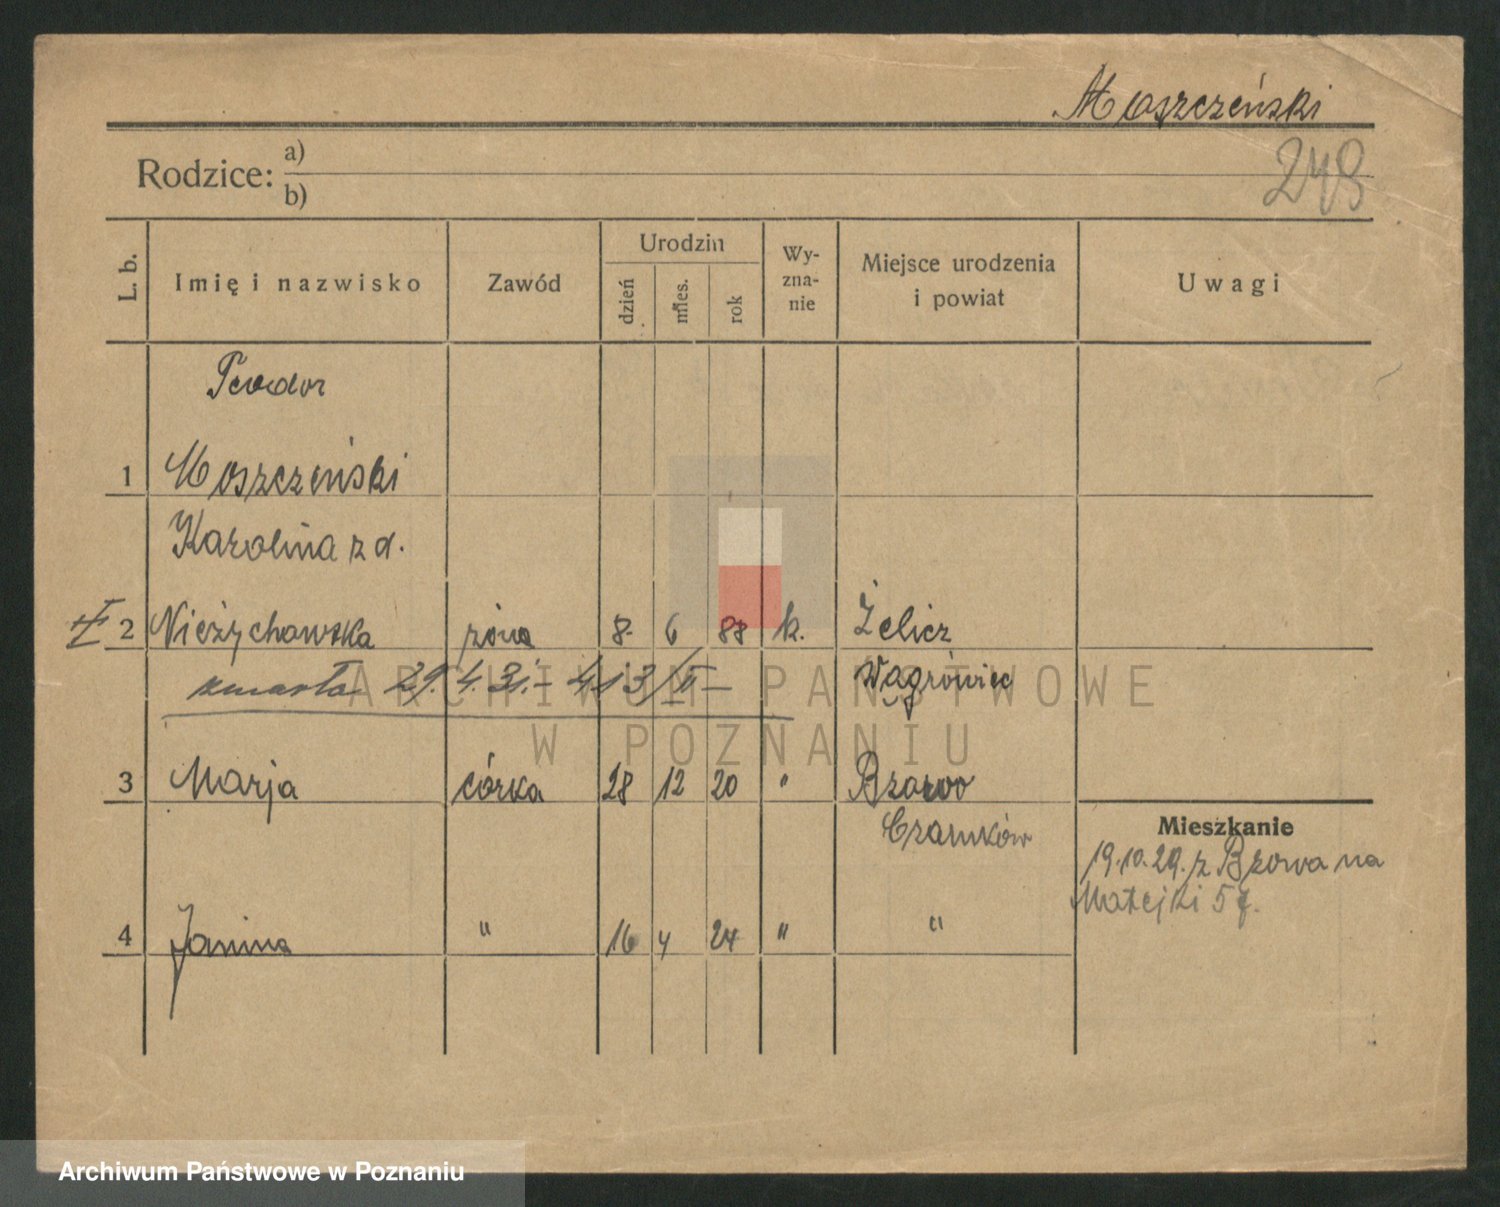 Moszczeński
Rodzice: a)
b)
248
L. b.
Imię i nazwisko
Zawód
Urodzin
dzień
mies.
rok
Wy-
zna-
nie
Miejsce urodzenia
i powiat
Uwagi
Teodor
1 Moszczeński
Karolina z d.
2 Nieżychowska żona 8. 6 88 k. Żelicz
zmarła 29.4.31.– 413/II – Wągrówiec
3 Marja córka 28 12 20 " Bzowo
Czarnków
Mieszkanie
19.10.29. z Bzowa na
Matejki 57.
4 Janina " 16 4 24 " "
ARCHIWUM PAŃSTWOWE
W POZNANIU
Archiwum Państwowe w Poznaniu